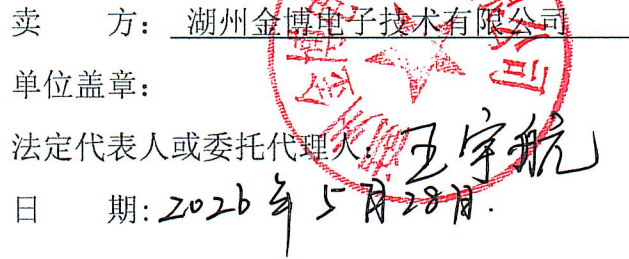 卖 方: 湖州金博电子技术有限公司
单位盖章:
法定代表人或委托代理人: 王宇航
日 期: 2026年5月28日.